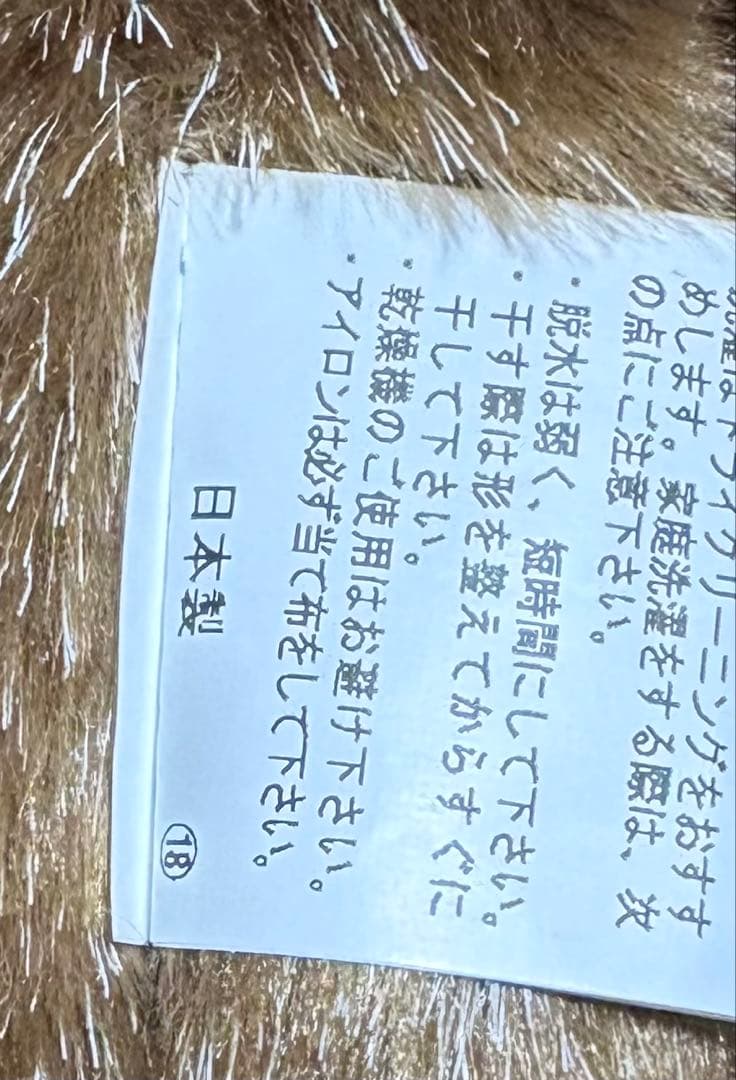 洗濯はドライクリーニングをおすす
めします。家庭洗濯をする際は、次
の点にご注意下さい。
・脱水は弱く、短時間にして下さい。
・干す際は形を整えてからすぐに
干して下さい。
・乾燥機のご使用はお避け下さい。
・アイロンは必ず当て布をして下さい。
日本製
18